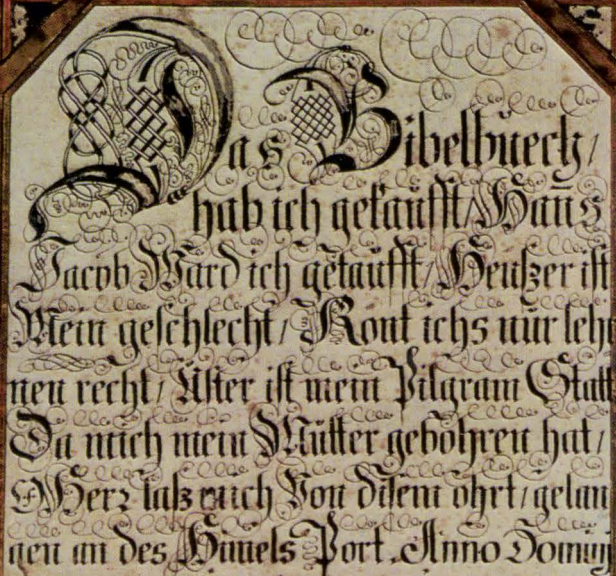 Das Bibelbuech/
hab ich gekaufft/ Hans
Jacob Ward ich getaufft/ Heuszer ist
Mein geschlecht/ Kont ichs nur leh
nen recht/ Uster ist mein Pilgram Statt
Da mich mein Mutter gebohren hat/
Herz lasz mich Von disem ohrt/ gelan
gen an des Himels Port. Anno Dominj